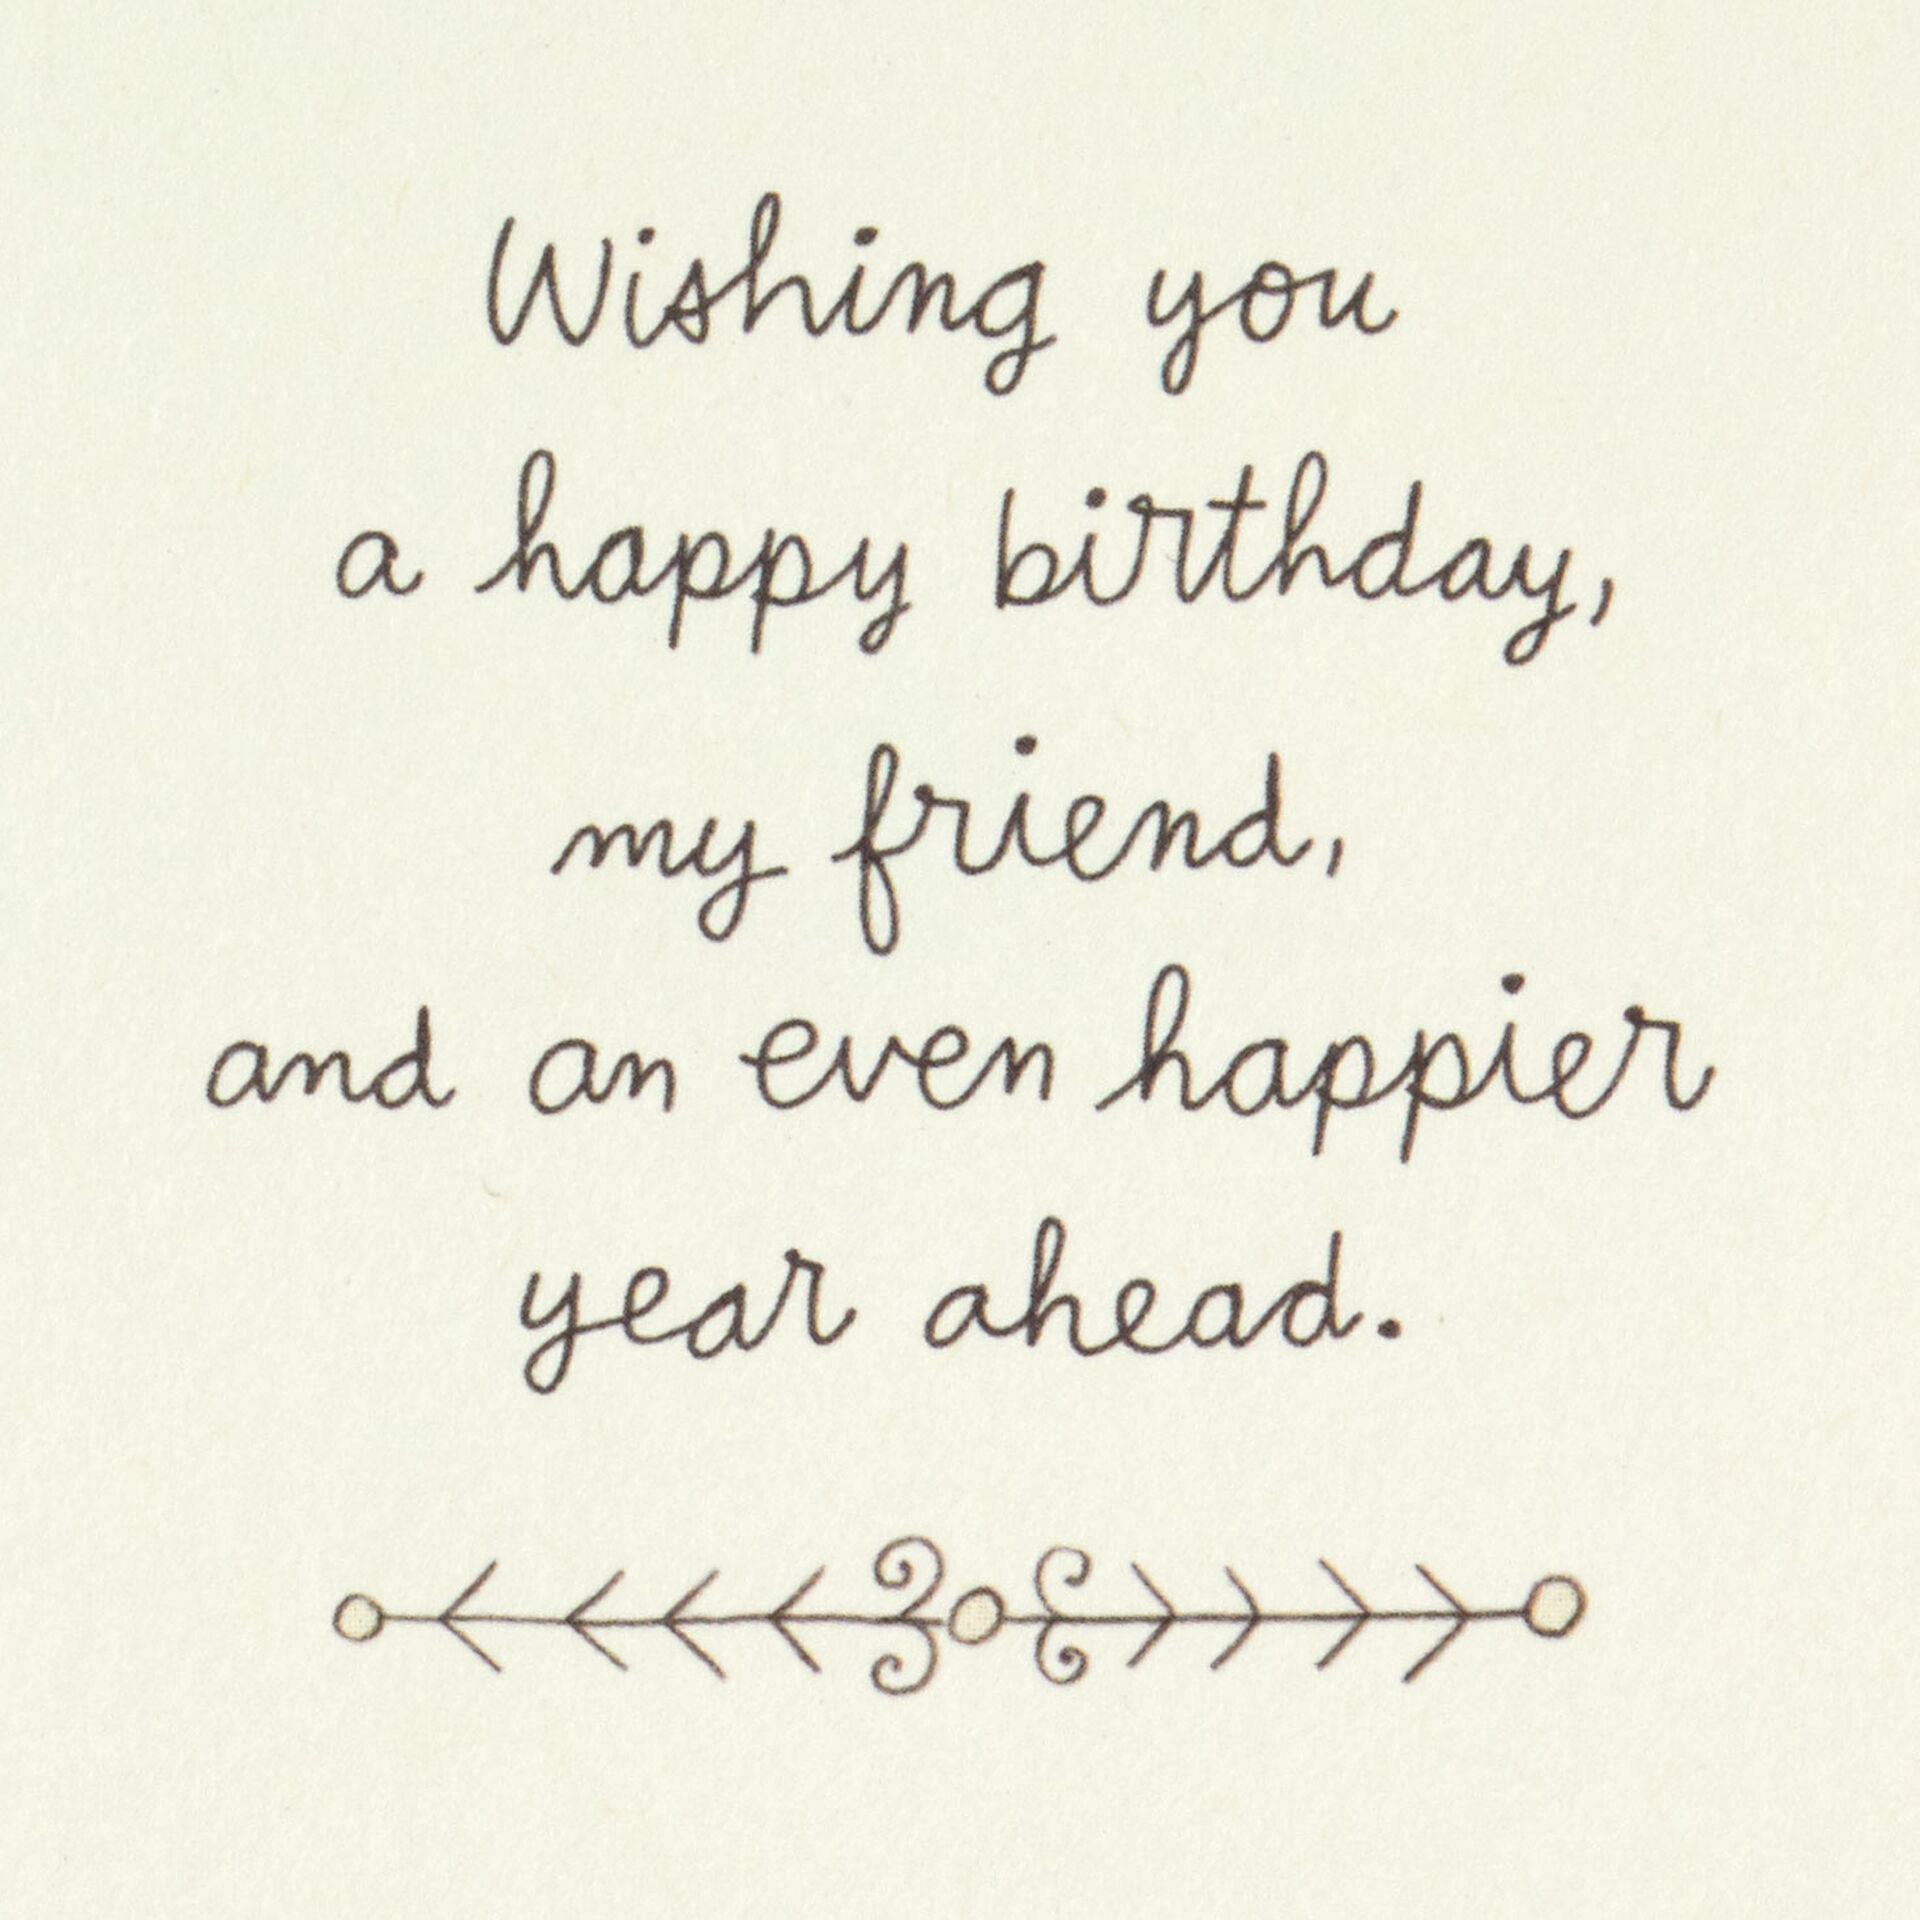 Wishing you
a happy birthday,
my friend,
and an even happier
year ahead.